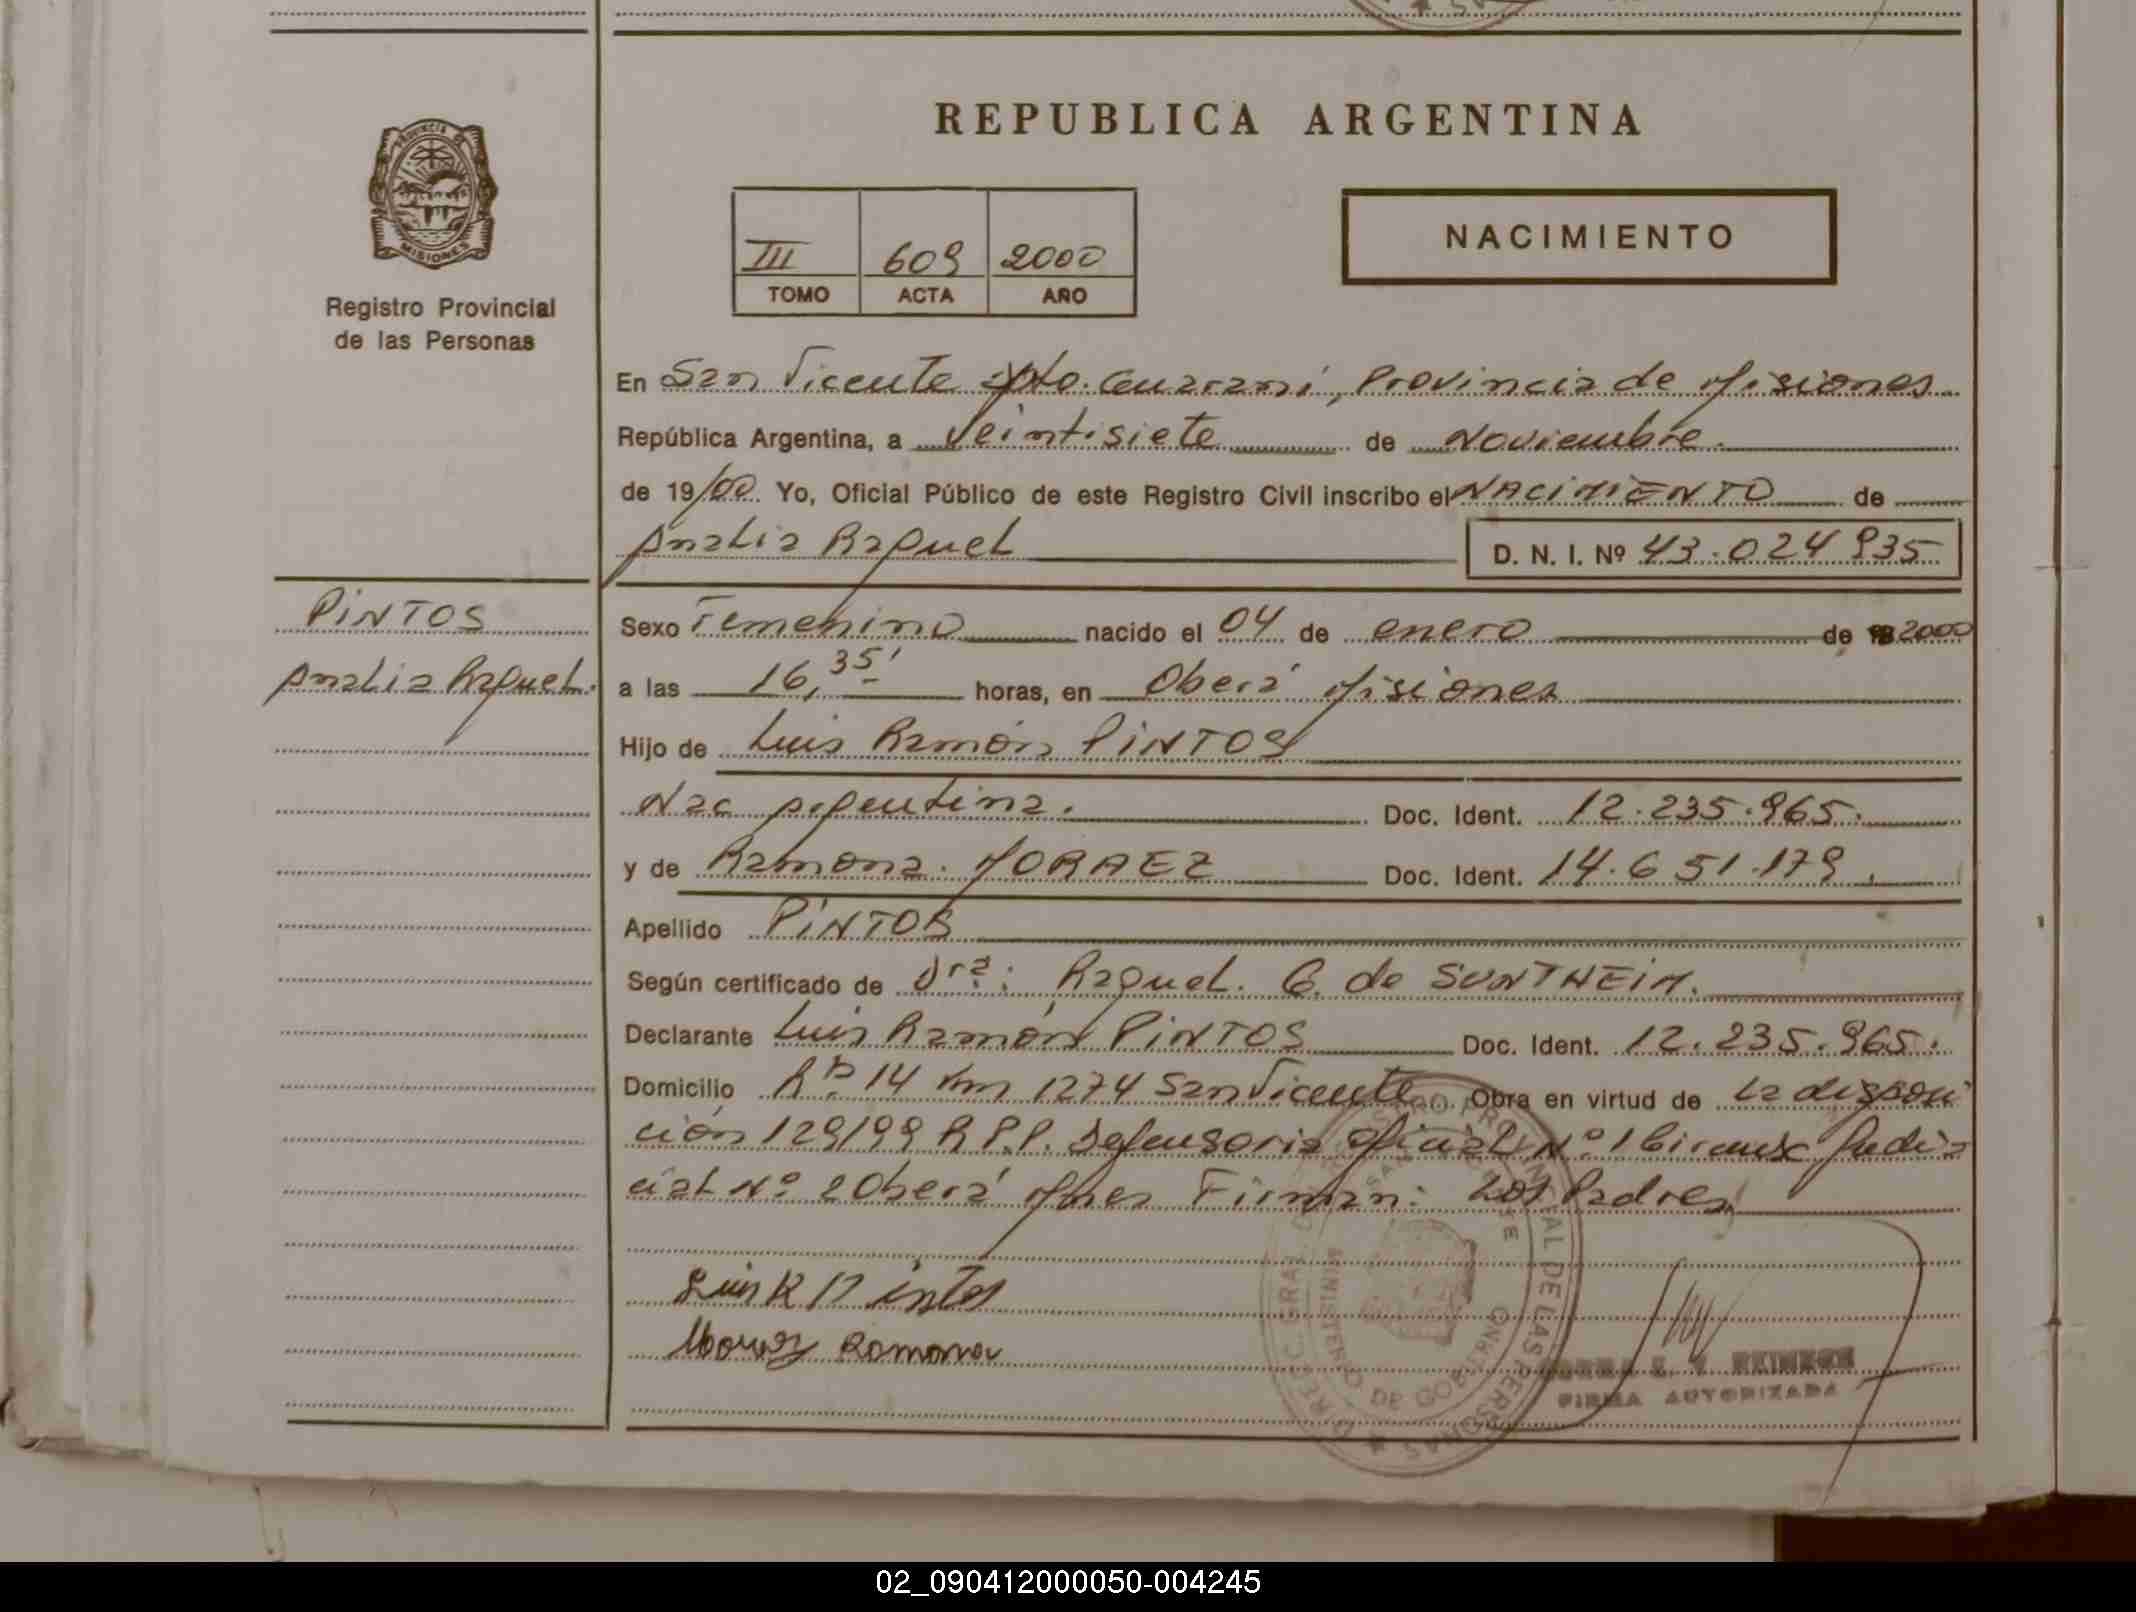 PROVINCIA DE
MISIONES
Registro Provincial
de las Personas
REPUBLICA ARGENTINA
III 609 2000
TOMO ACTA AÑO
NACIMIENTO
En San Vicente Dpto. Guaraní, Provincia de Misiones
República Argentina, a Veintisiete de Noviembre.
de 19/00 Yo, Oficial Público de este Registro Civil inscribo el NACIMIENTO de
Analia Raquel
D. N. I. Nº 43.024.935
PINTOS
Analia Raquel.
Sexo Femenino nacido el 04 de enero de 2000
a las 16,35' horas, en Oberá Misiones
Hijo de Luis Ramón PINTOS
Nac Argentina. Doc. Ident. 12.235.965.
y de Ramona. MORAEZ Doc. Ident. 14.651.179.
Apellido PINTOS
Según certificado de Dra: Raquel. G. de SUNTHEIM.
Declarante Luis Ramón PINTOS Doc. Ident. 12.235.965.
Domicilio 14 km 1274 San Vicente Obra en virtud de la disposi
ción 129/99 R.P.P. Defensoria Oficial Nº 1 Judi
cial Nº 2 Oberá Mnes Firman: Los Padres
Luis R Pintos
Moraez Ramona
FIRMA AUTORIZADA
DIREC. GRAL. DEL REGISTRO PROVINCIAL DE LAS PERSONAS
MINISTERIO DE GOBIERNO
SAN VICENTE
02_090412000050-004245